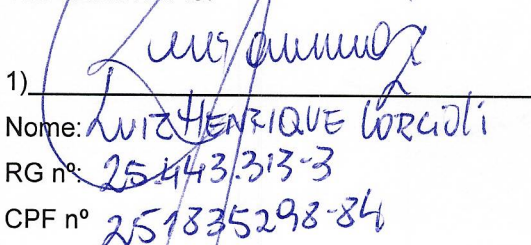 1)
Nome: LUIZ HENRIQUE CORCIOLI
RG nº: 25.443.313-3
CPF nº 251835298-84